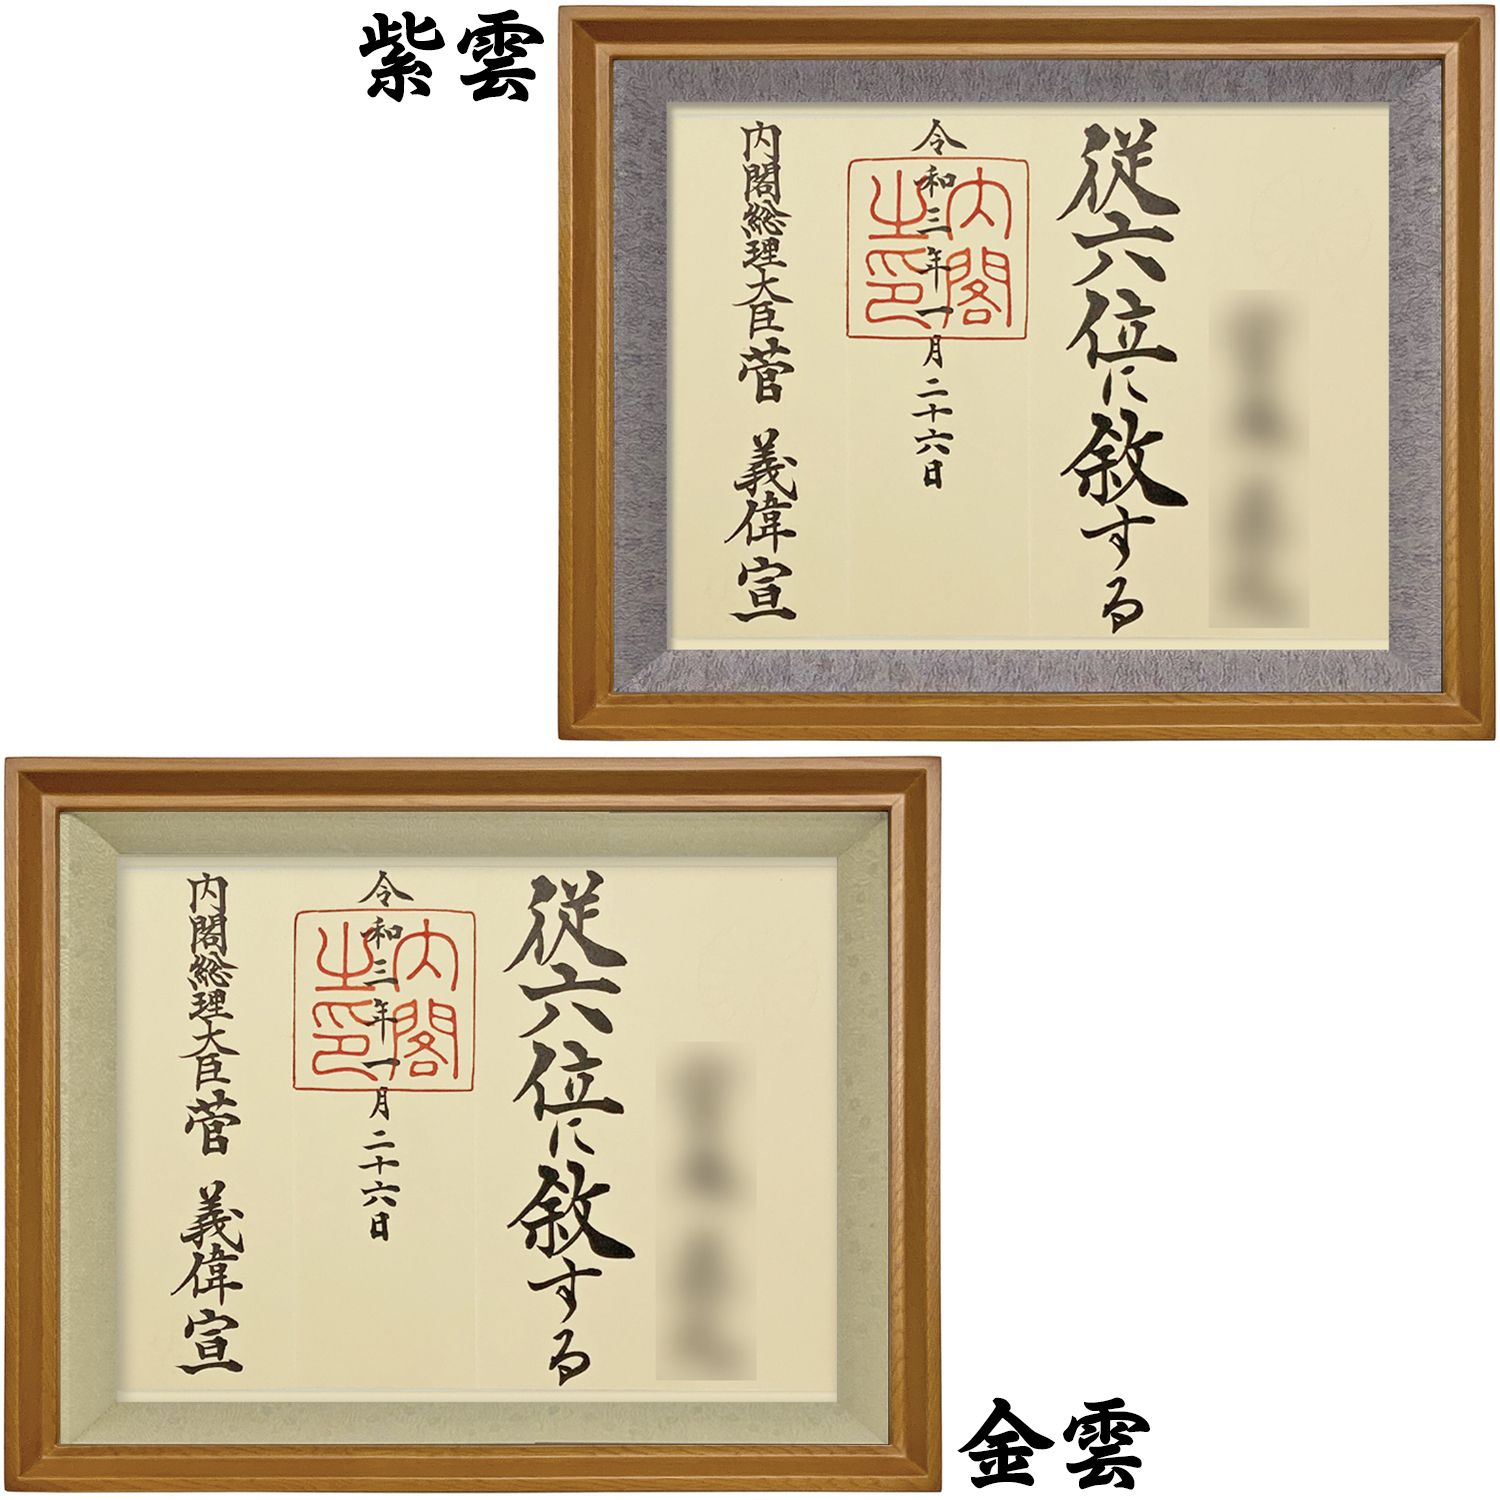 紫雲
従六位に敘する
令和三年一月二十六日
内閣之印
内閣総理大臣菅 義偉宣
従六位に敘する
令和三年一月二十六日
内閣之印
内閣総理大臣菅 義偉宣
金雲